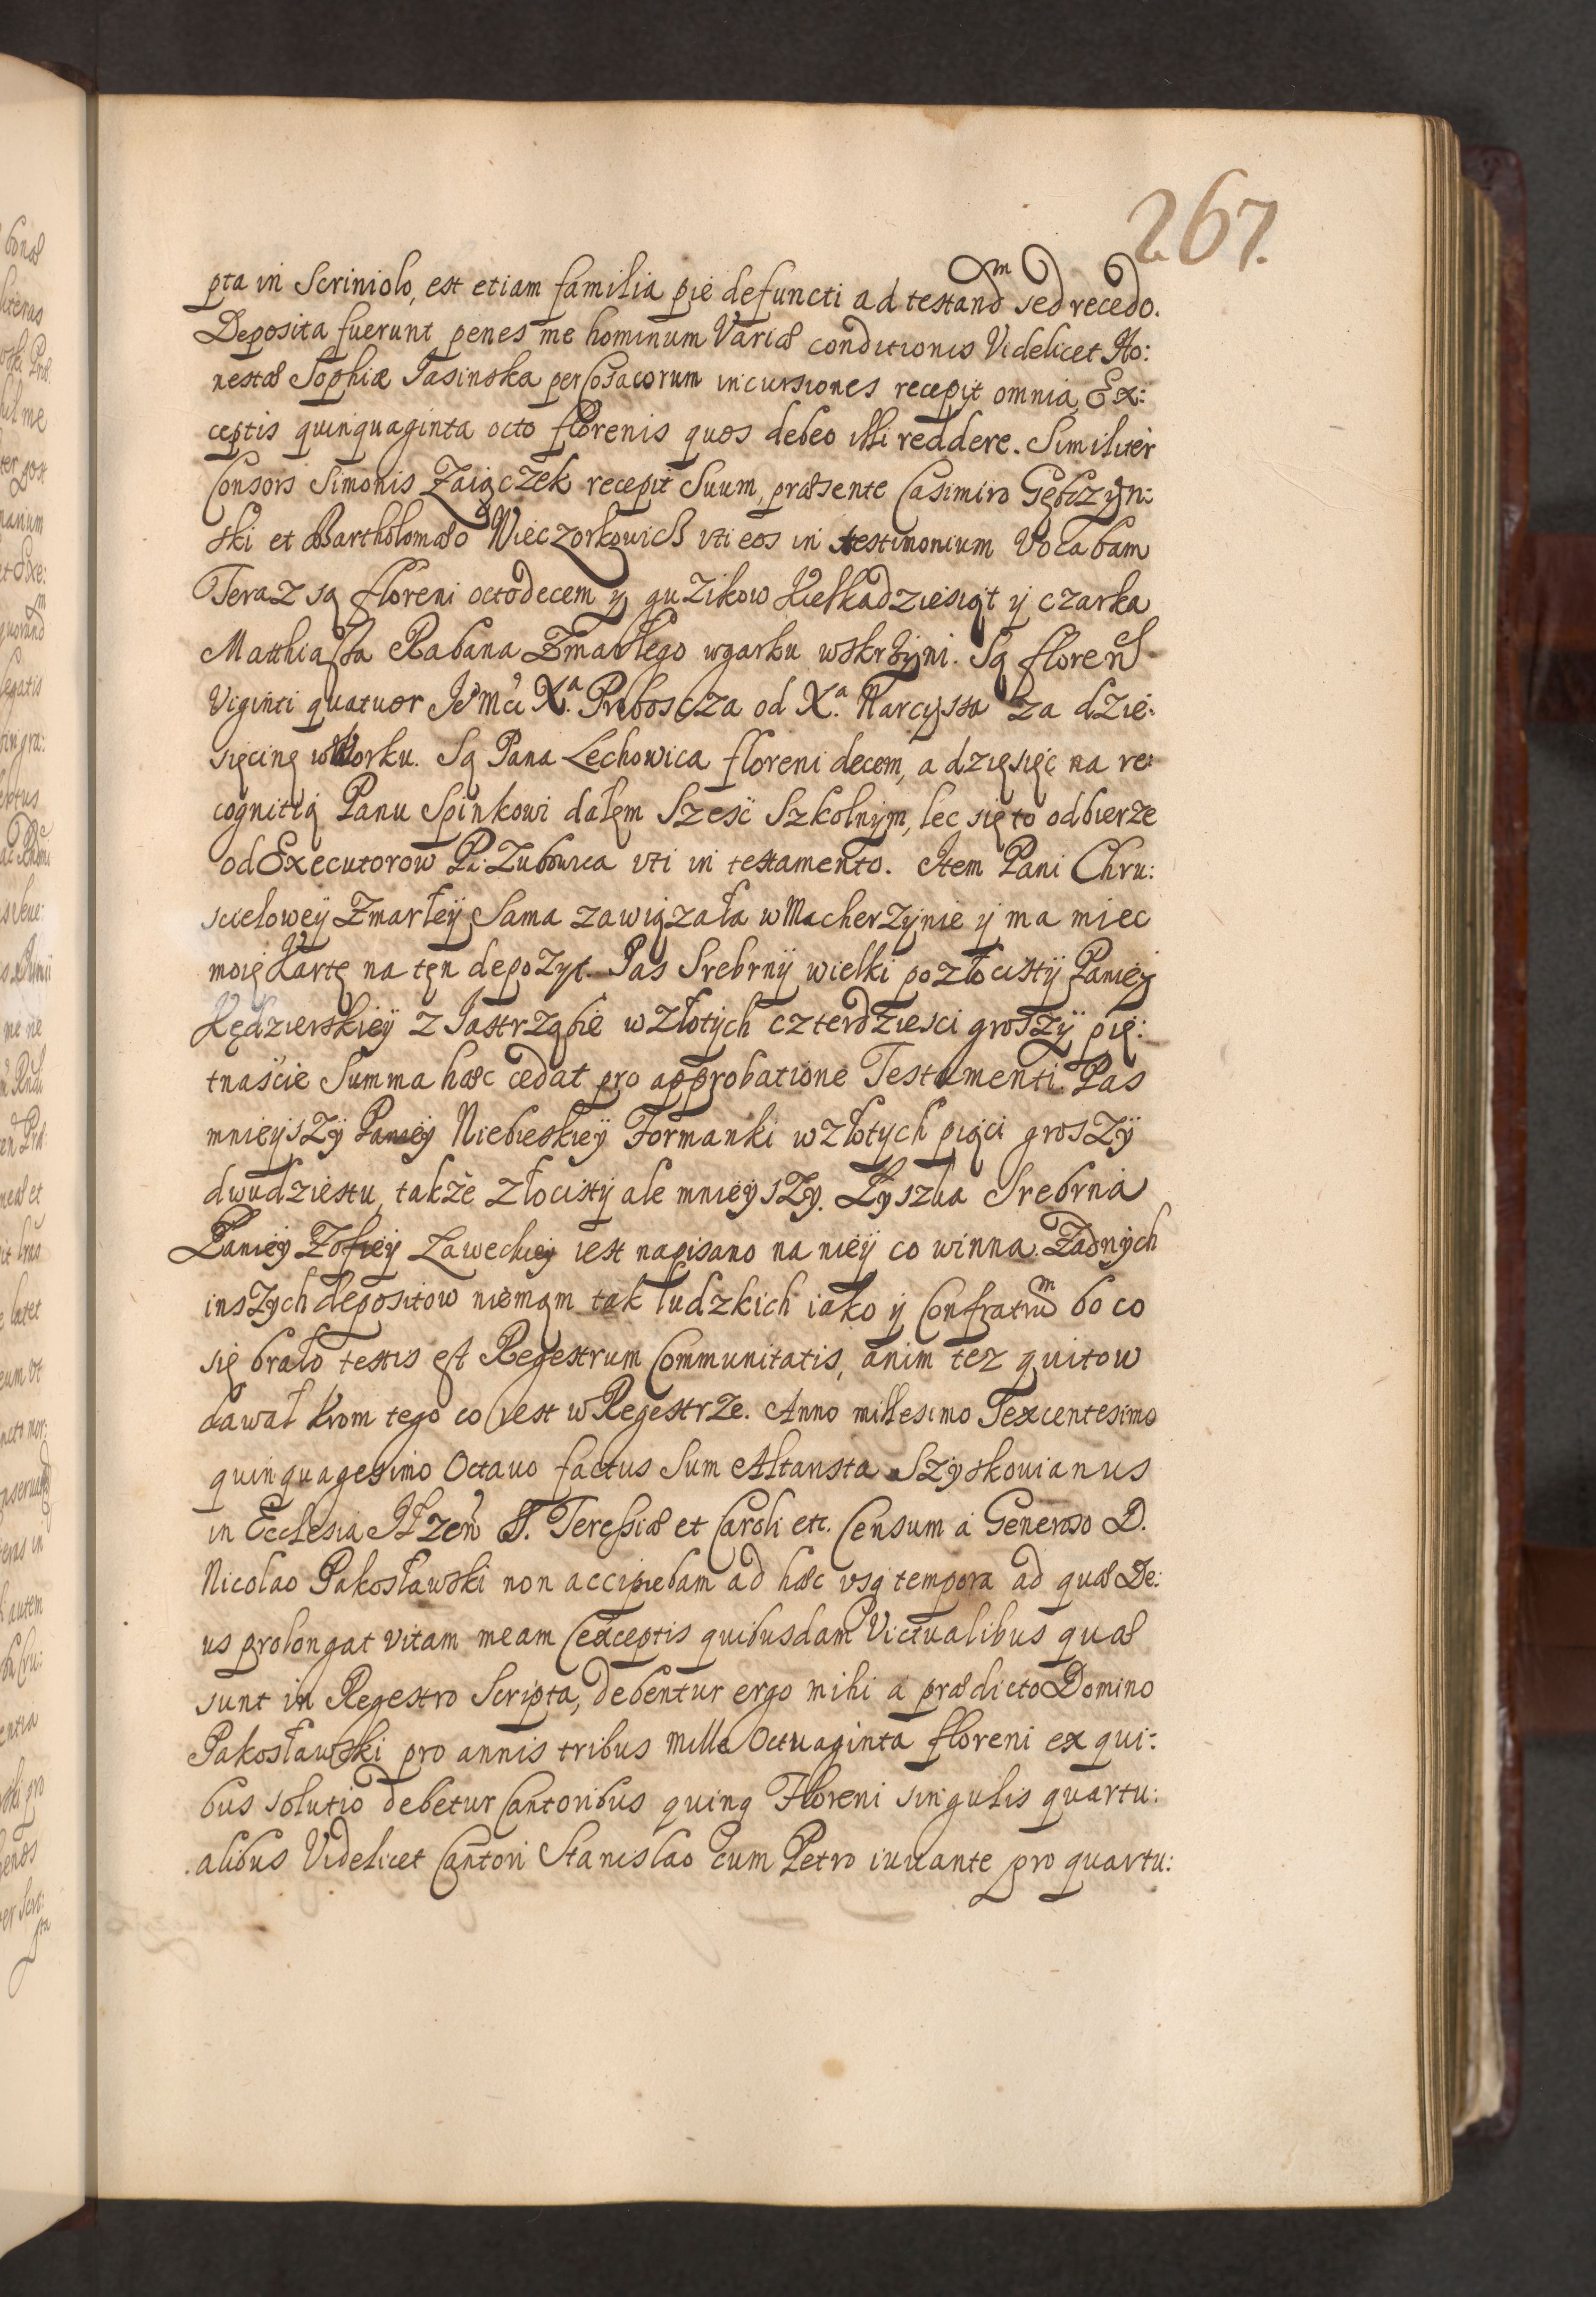 267.
pta in Scriniolo, est etiam familia pie defuncti ad testand̃ᵐ sed recedo.
Deposita fuerunt penes me hominum Variæ conditionis Videlicet Ho:
nestæ Sophiæ Jasinska per Cosacorum incursiones recepit omnia, Ex:
ceptis quinquaginta octo florenis quos debeo illi reddere. Similiter
Consors Simonis Zaiączek recepit Suum, præsente Casimiro Gębczÿn:
ski et Bartholomæo Wieczorkowicz vti eos in testimonium Vocabam
Teraz są floreni octodecem y guzikow Kielkadziesiąt ÿ czarka
Matthiasza Rabana Zmarłego wgarku wskrzÿni. Są floren
Viginti quatuor Je͛ Mci Xᵃ. Proboscza od Xᵃ. Narcyssa za dzie:
sięcinę w Worku. Są Pana Lechowica floreni decem, a dzięsięć na re:
cognitią Panu Spinkowi dałęm Szesć Szkolnÿm, lec się to odbierze
od Executorow Pa: Zubowica vti in testamento. Item Pani Chru:
scieloweÿ Zmarłeÿ Sama zawiązała w Macherzÿnie ÿ ma miec
moię Kartę na tęn depozyt. Pas Srebrnÿ wielki pozłocistÿ Panieÿ
Kędzierskieÿ z Jastrząbie w złotÿch czterdziesci groszÿ pię:
tnaście Summa hæc cedat pro approbatione Testamenti. Pas
mnieÿszÿ Panieÿ Niebieskieÿ Formanki w złotych piąci groszÿ
dwudziestu, także złocistÿ ale mnieÿszÿ. Łyszka Srebrna
Panieÿ Zofieÿ Zaweckieÿ iest napisano na nieÿ co winna. Żadnÿch
inszÿch depositow niemąm tak ludzkich iako ÿ Confratruᵐ bo co
się brało testis est Regestrum Communitatis, anim tez quitow
dawał krom tego co iest w Regestrze. Anno millesimo Sexcentesimo
quinquagesimo Octauo factus Sum Altarista Szÿskouianus
in Ecclesia Iłzen̛ S. Teressiæ et Caroli etc. Censum a Generoso D.
Nicolao Pakosławski non accipiebam ad hæc vsq tempora ad quæ De:
us prolongat vitam meam (exceptis quibusdam Victualibus quæ
sunt in Regestro Scripta, debentur ergo mihi a prædicto Domino
Pakosławski pro annis tribus Mille Octuaginta floreni ex qui:
bus solutio debetur Cantoribus quinq Floreni singulis quartu:
alibus Videlicet Cantori Stanislao cum Petro iuuante pro quartu: